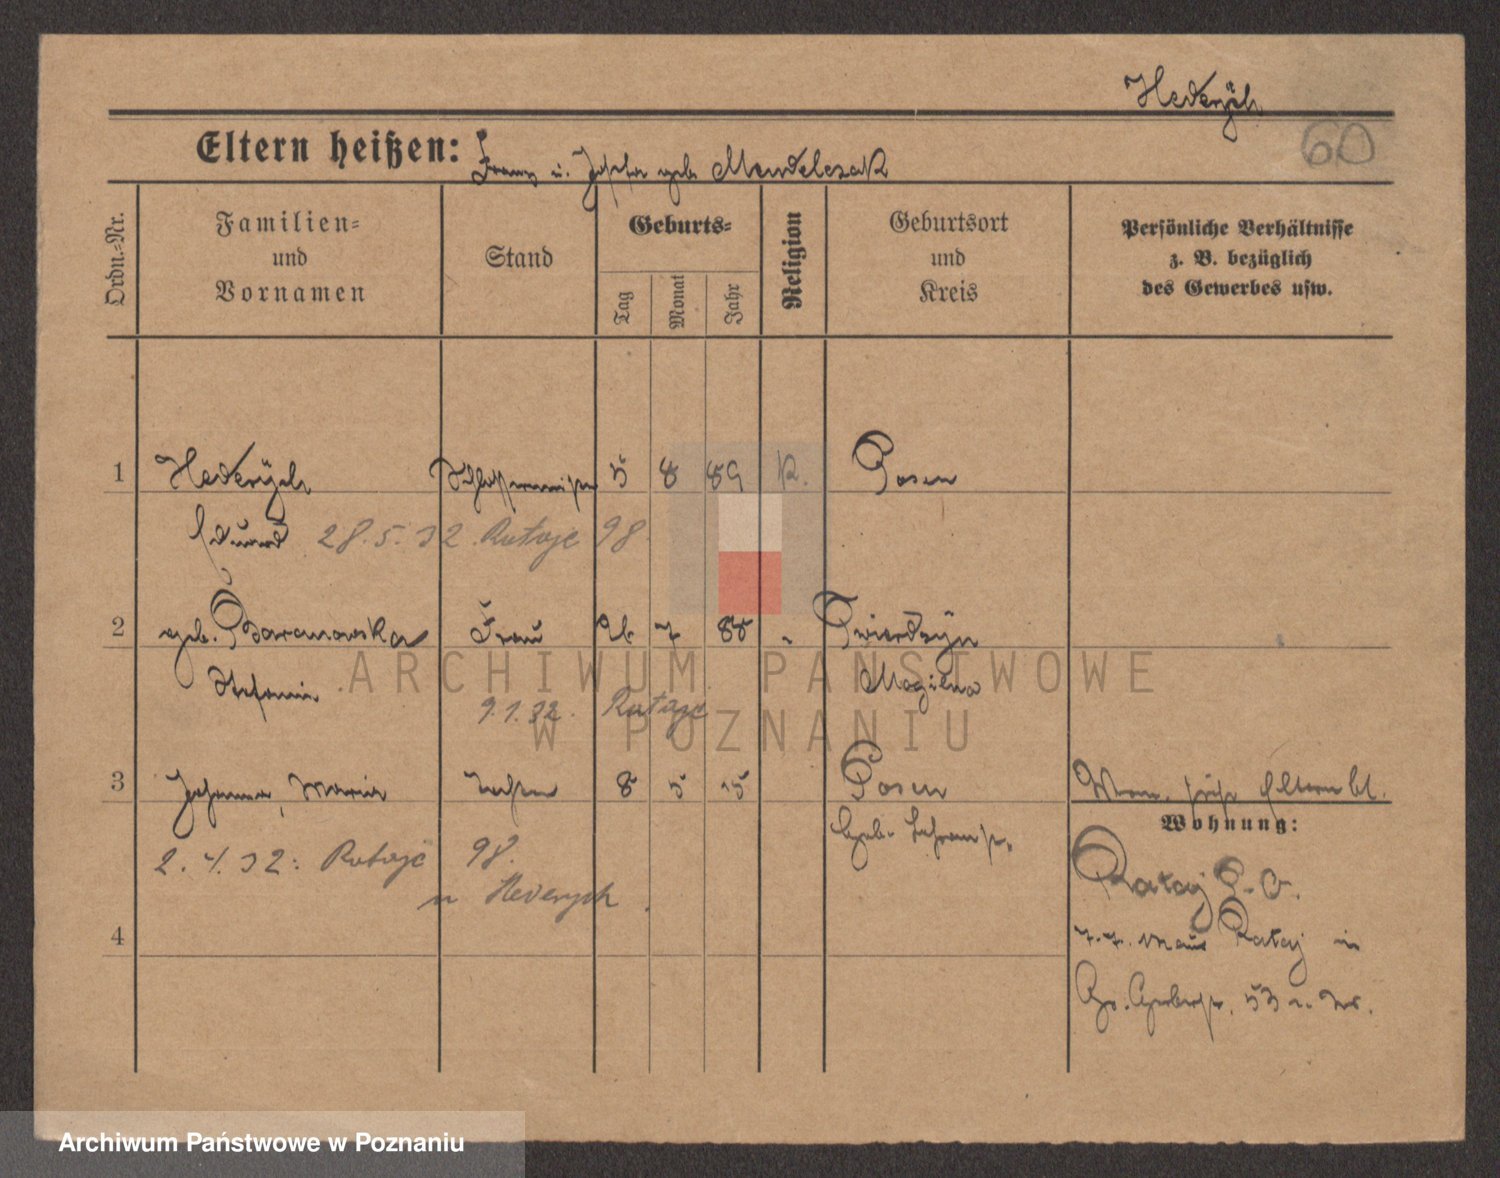 Hederÿch
60
Eltern heißen: Franz u. Josefa geb. Mendelczak
Ordn.=Nr.
Familien=
und
Vornamen
Stand
Geburts=
Tag
Monat
Jahr
Religion
Geburtsort
und
Kreis
Persönliche Verhältnisse
z. B. bezüglich
des Gewerbes usw.
1 Hederÿch Schlossermeister 5 8 89 K. Posen
Eduard 28.5.32 Rataje 98.
2 geb. Baranowska Frau 26 7 88 " Twierdzÿn
Stefania Mogilno
9.1.32. Rataje
3 Johanna, Maria Posen
8 5 15
Wohnung:
2.4.32: Rataje 98.
Hederych
Rataj
4
7.7. Rataj in
Gr. Gerberstr. 53
ARCHIWUM PAŃSTWOWE
W POZNANIU
Archiwum Państwowe w Poznaniu